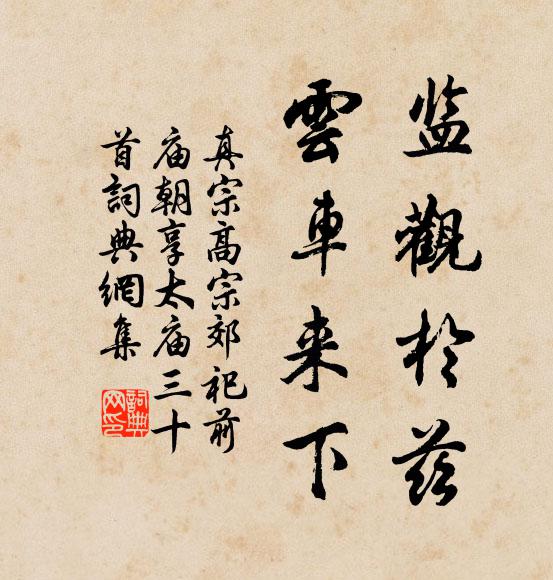 监觀於兹
雲車来下
真宗高宗郊祀前
庙朝享太庙三十
首詞典網集
詞典
网印